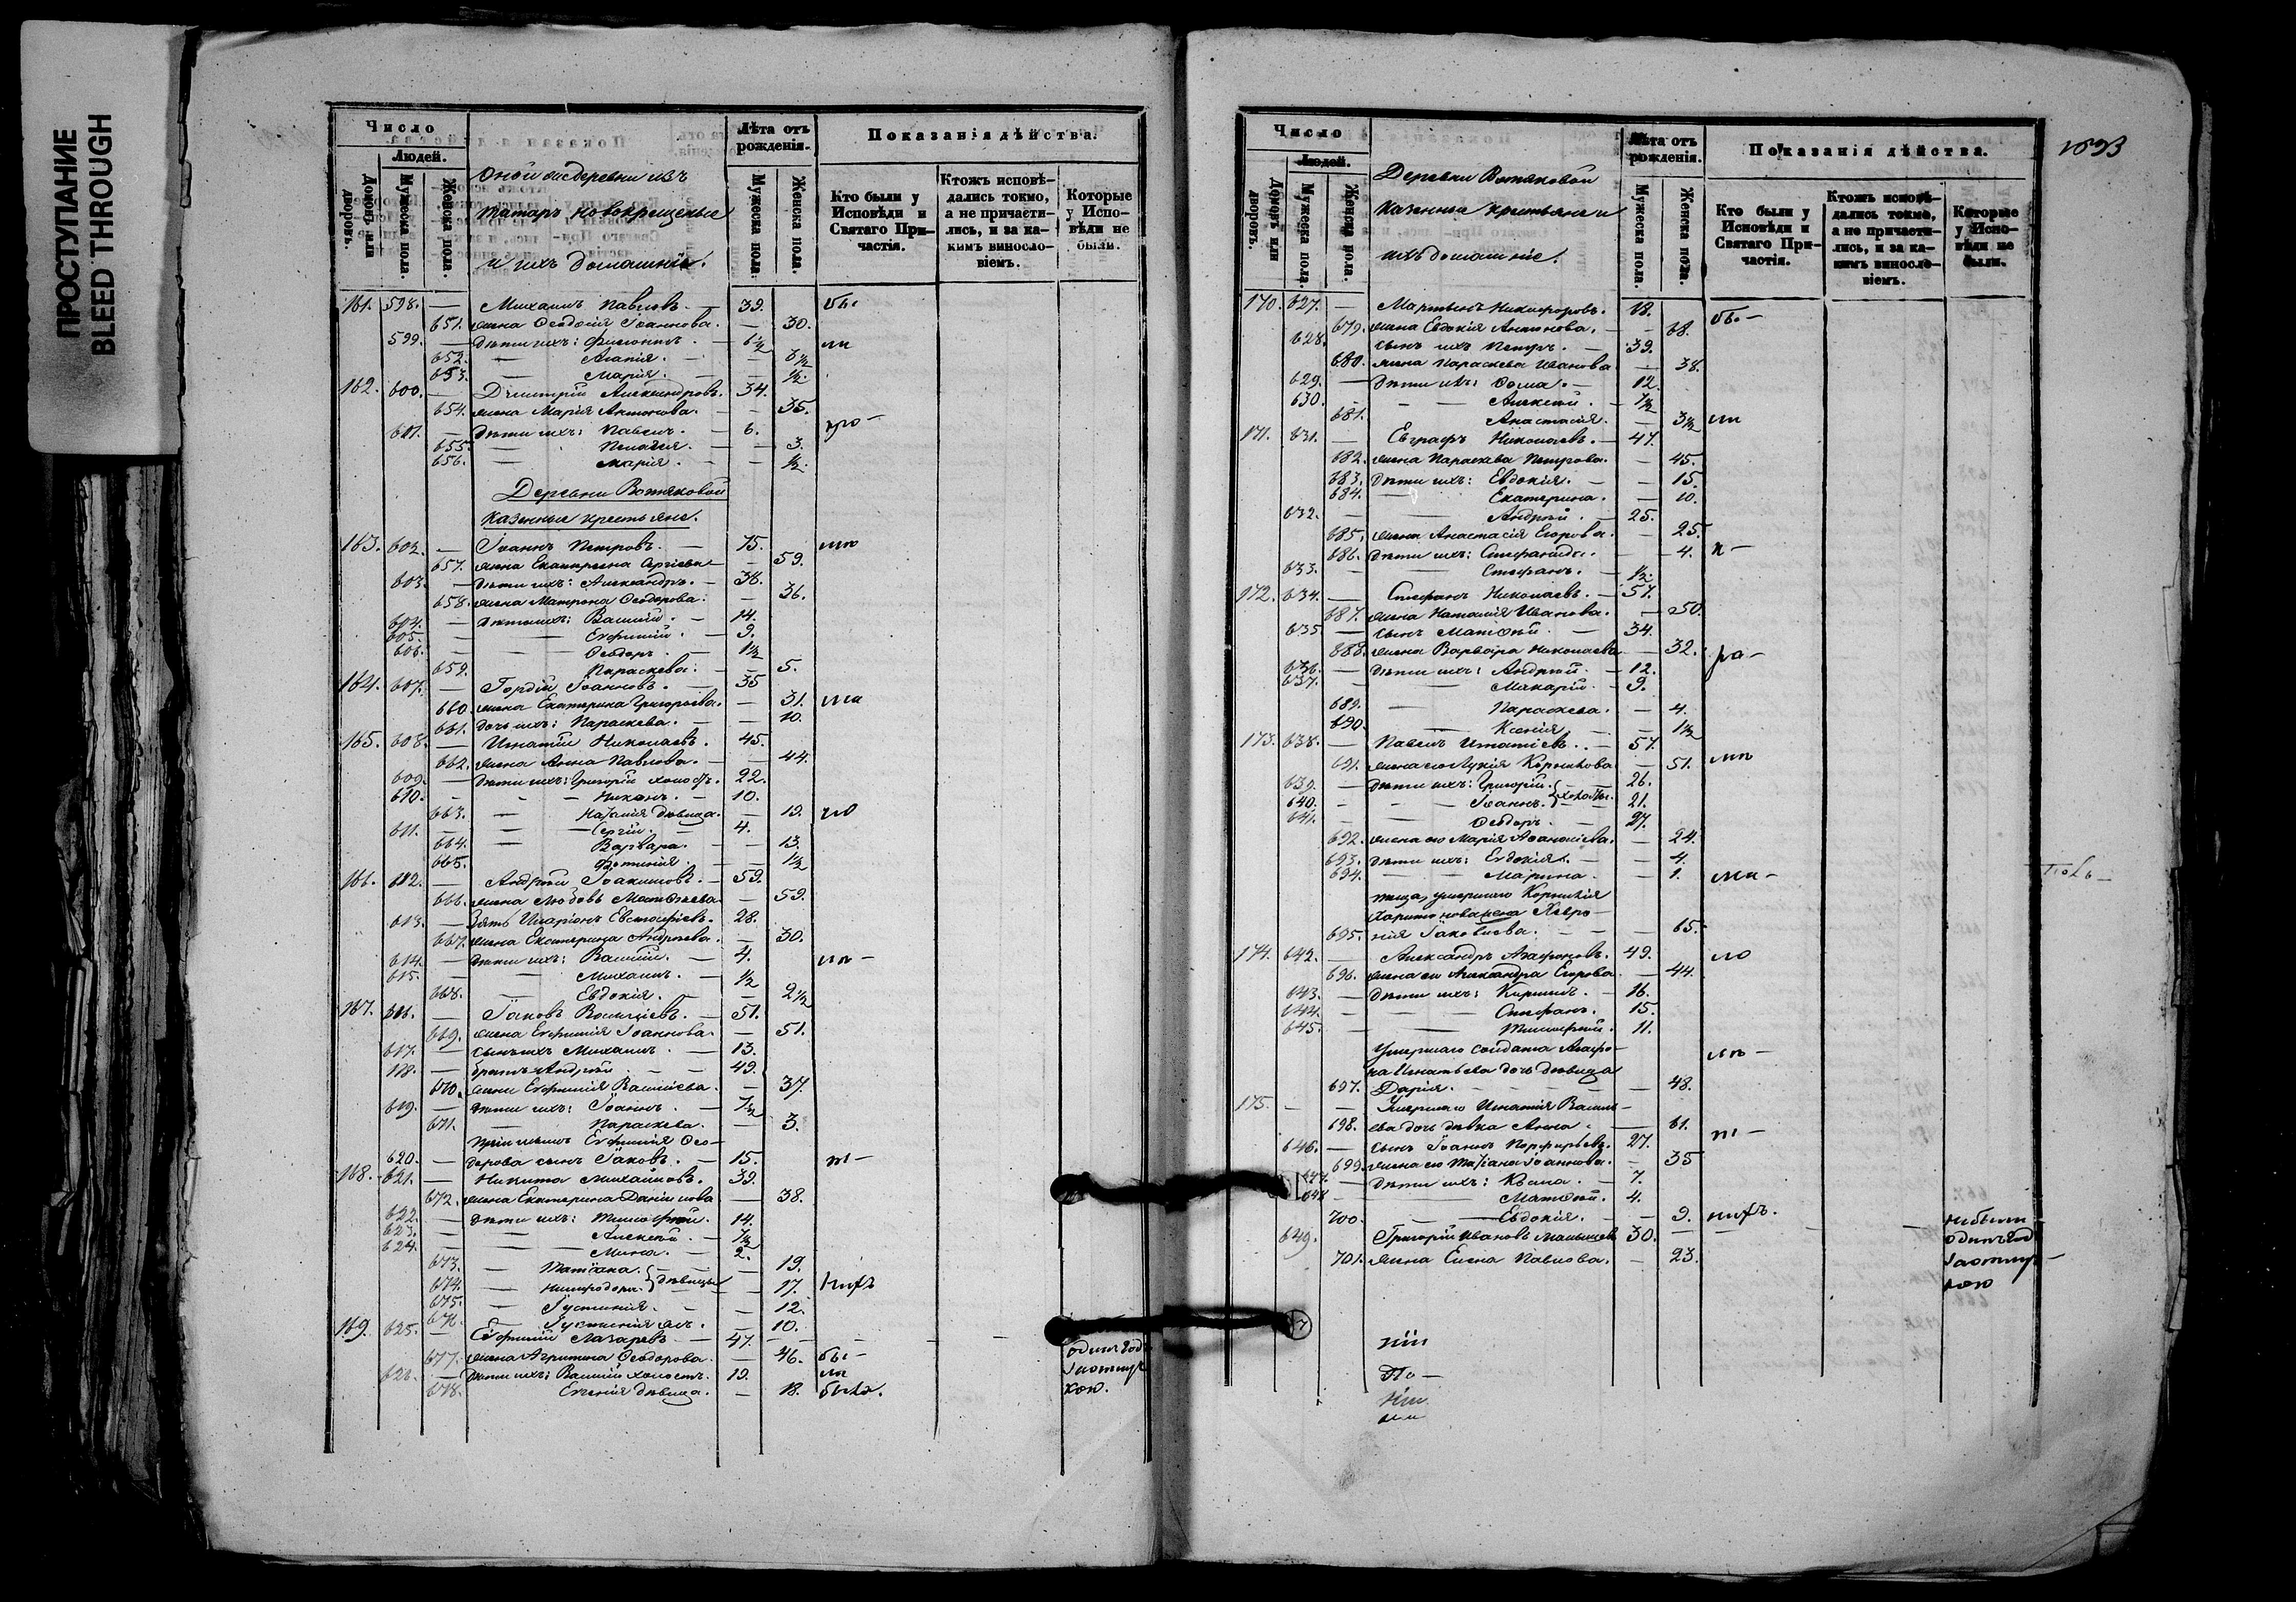 ПРОСТУПАНИЕ
BLEED THROUGH
Число
Людей.
Домовъ или дворовъ.
Мужеска пола.
Женска пола.
Оной же деревни изъ
татаръ новокрещеные
и ихъ домашніе.
Лѣта отъ рожденія.
Мужеска пола.
Женска пола.
Показанія дѣйства.
Кто были у Исповѣди и Святаго Причастія.
Ктожъ исповѣдались токмо, а не причастились, и за какимъ винословіемъ.
Которые у Исповѣди не были.
161. 598. — Михаилъ Павловъ. — 39. бы
651. жена Ѳеодосія Іоаннова. — 30.
599. — дѣти ихъ: Филиппъ. — 6½ ли
652. — Агапія. — 3½
653. — Марія. — ½.
162. 600. — Димитрій Александровъ. 34.
654. жена Марія Антонова. — 35.
601. — дѣти ихъ: Павелъ. — 6.
655. — Пелагея. — 3.
656. — Марія. — ½.
Деревни Вотяковой
казенные крестьяне.
163. 602. — Іоаннъ Петровъ. — 75.
657. жена Екатерина Сергіева — 59.
603. — дѣти ихъ: Александръ. — 36.
658. жена Матрона Ѳеодорова. — 36.
604. — дѣти ихъ: Василій. — 14.
605. — Евфимій. — 9.
606. — Ѳеодоръ. — 1½
659. Параскева. — 5.
164. 607. — Гордій Іоанновъ. — 35
660. жена Екатерина Григорьева. — 31.
661. дочь ихъ: Параскева. — 10.
165. 608. — Игнатій Николаевъ. 45.
662. жена Анна Павлова. — 44.
609. — дѣти ихъ: Григорій холостъ. 22.
610. — Никонъ. — 10.
663. — Наталія дѣвица. — 19.
611. — Сергій. — 4.
664. — Варвара. — 13.
665. — Фотинія. — 1½
166. 612. — Андрей Іоакимовъ. — 59.
666. жена Любовь Матѳеева — 59.
613. — Зять Иларіонъ Евстафіевъ. 28.
667. жена Екатерина Андреева. — 30.
614. — дѣти ихъ: Василій. — 4.
615. — Михаилъ. — ½
668. — Евдокія. — 2½
167. 616. — Іаковъ Васильевъ. — 51.
669. жена Евфимія Іоаннова. — 51.
617. — сынъ ихъ Михаилъ. — 13.
618. — братъ Андрей — 49.
670. жена Евфимія Васильева. — 37.
619. — дѣти ихъ: Іоаннъ. — 7½
671. — Параскева. — 3.
Евфимія Ѳео-
620. — дорова сынъ Іаковъ. — 15.
168. 621. — Никита Михайловъ. 39.
672. жена Екатерина Даніилова — 38.
622. — дѣти ихъ: Тимофей. 14.
623. — Алексѣй. — 7½
624. — Мина. — 2.
673. — Татіана. — 19.
674. — дѣвицы — 17. нихъ
675. — Іустинія. — 12.
676. — Іустинія — 10.
169. 625. — Евфимій Лазаревъ — 47.
677. жена Агрипина Ѳеодорова. — 46. бы—
626. — дѣти ихъ: Василій холостъ. 19. ли
678. Евгенія дѣвица. — 18. была.
одинъ год
1693
Число
Людей.
Домовъ или дворовъ.
Мужеска пола.
Женска пола.
Деревни Вотяковой
казенные крестьяне и
ихъ домашніе.
Лѣта отъ рожденія.
Мужеска пола.
Женска пола.
Показанія дѣйства.
Кто были у Исповѣди и Святаго Причастія.
Ктожъ исповѣдались токмо, а не причастились, и за какимъ винословіемъ.
Которые у Исповѣди не были.
170. 627. — Мартынъ Никифоровъ. 78. бы—
679. жена Евдокія Антипова. — 68.
628. сынъ ихъ Петръ. — 39.
680. жена Параскева Иванова — 38.
629. — дѣти ихъ: Ѳома. — 12.
630. — Алексѣй. — 7½
681. Анастасія. — 3½ ли
171. 631. — Евграфъ Николаевъ. — 47.
682. жена Параскева Петрова. — 45.
683. дѣти ихъ: Евдокія. — 15.
684. — Екатерина. — 10.
632. — Андрей. — 25.
685. жена Анастасія Егорова. — 25.
686. дѣти ихъ: Стефанида. — 4.
633. Стефанъ. — ½
172. 634. — Стефанъ Николаевъ. — 57.
687. жена Наталія Иванова. — 50.
635. — сынъ Матѳей. — 34.
688. жена Варвара Николаева. — 32.
636. — дѣти ихъ: Андрей. — 12.
637. — Макарій. — 9.
689. — Параскева. — 4.
690. — Ксенія — 1½
173. 638. — Павелъ Игнатіевъ. — 57.
691. жена его Лукія Корнилова — 51.
639. — дѣти ихъ: Григорій. — 26.
640. — Іоаннъ. холосты. 21.
641. — Ѳеодоръ. — 27.
692. жена его Марія Аѳанасіева. — 24.
693. дѣти ихъ: Евдокія. — 4.
694. — Марина. — 1.
умершаго Корнилія
Харитонова жена Хевро-
695. нія Іаковлева. — 65.
174. 642. — Александръ Агафоновъ. 49.
696. жена его Александра Егорова — 44.
643. — дѣти ихъ: Кириллъ. — 16.
644. — Стефанъ. — 15.
645. — Тимофей. 11.
Умершаго солдата Агафо-
на Игнатьева дочь дѣвица
697. Дарія. — 48.
175. — Умершаго Игнатія Василь-
698. ева дочь дѣвка Анна. — 61.
646. — сынъ Іоаннъ Порфирьевъ. 27.
699. жена его Татіана Іоаннова. — 35
647. — дѣти ихъ: Косма. — 7.
648. — Матѳей. 4.
700. — Евдокія. — 9. нихъ.
649. Григорій Ивановъ Малышевъ 30.
701. жена Елена Павлова. — 23.
не были
одинъ год
По—